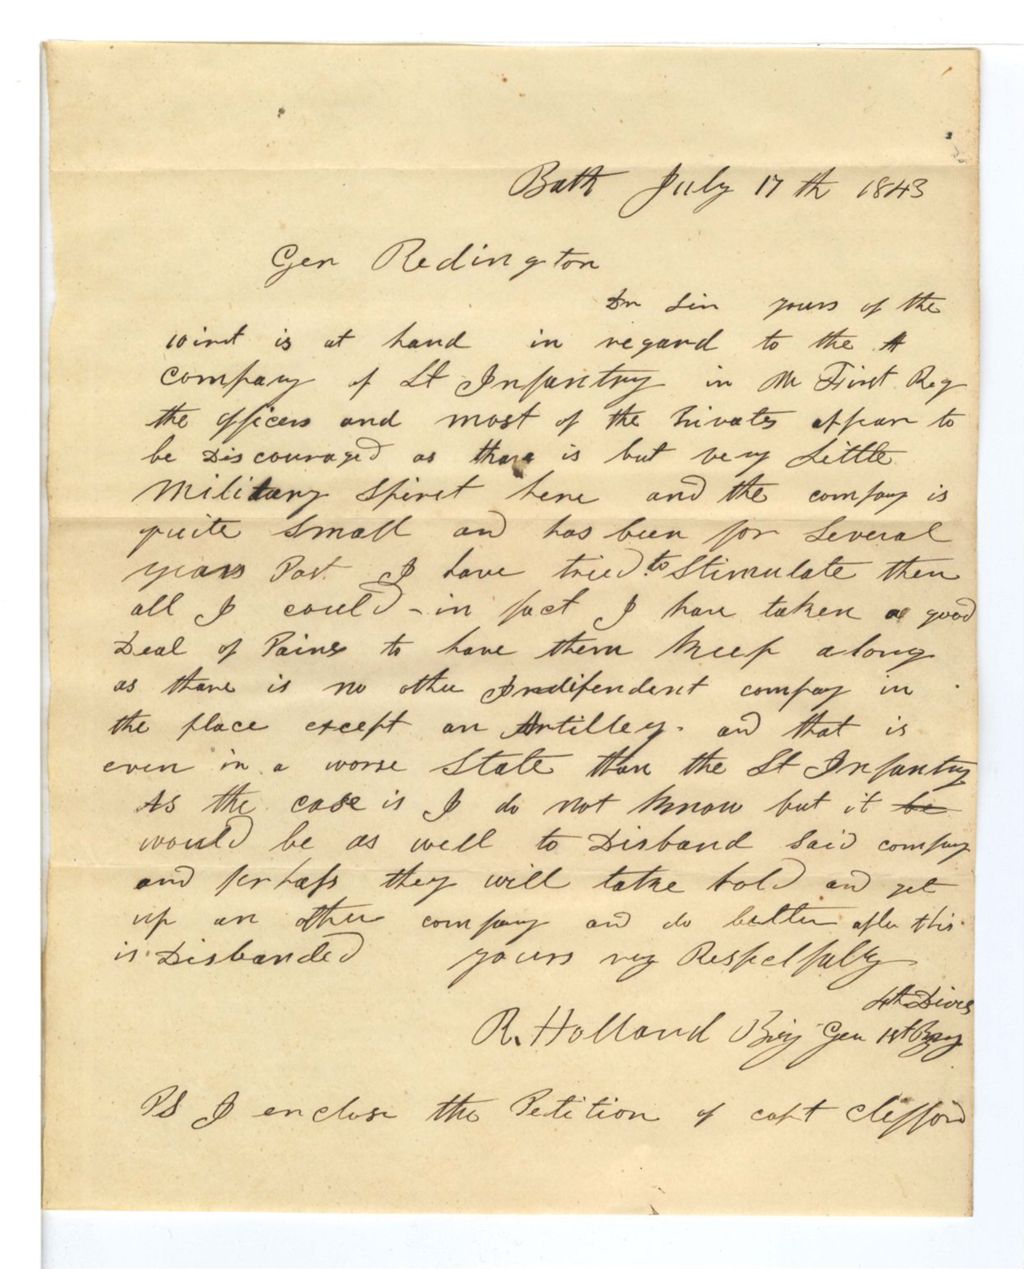 Bath July 17th 1843
Gen Redington
Dr Sir yours of the
10 inst is at hand in regard to the A
company of Lt Infantry in the First Reg
the officers and most of the Privates appear to
be Discouraged as there is but very Little
Military Spirit here and the company is
quite Small and has been for Several
years Past I have tried to Stimulate them
all I could - in fact I have taken a good
Deal of Pains to have them Keep along
as there is no other Independent company in
the place except an Artillery. and that is
even in a worse State than the Lt Infantry
As the case is I do not Know but it be
would be as well to Disband Said company
and perhaps they will take hold and get
up an other company and do better after this
is Disbanded yours very Respectfully
4th Divis
R. Holland Brig Gen 1st Brig
PS I enclose the Petition of capt Clifford